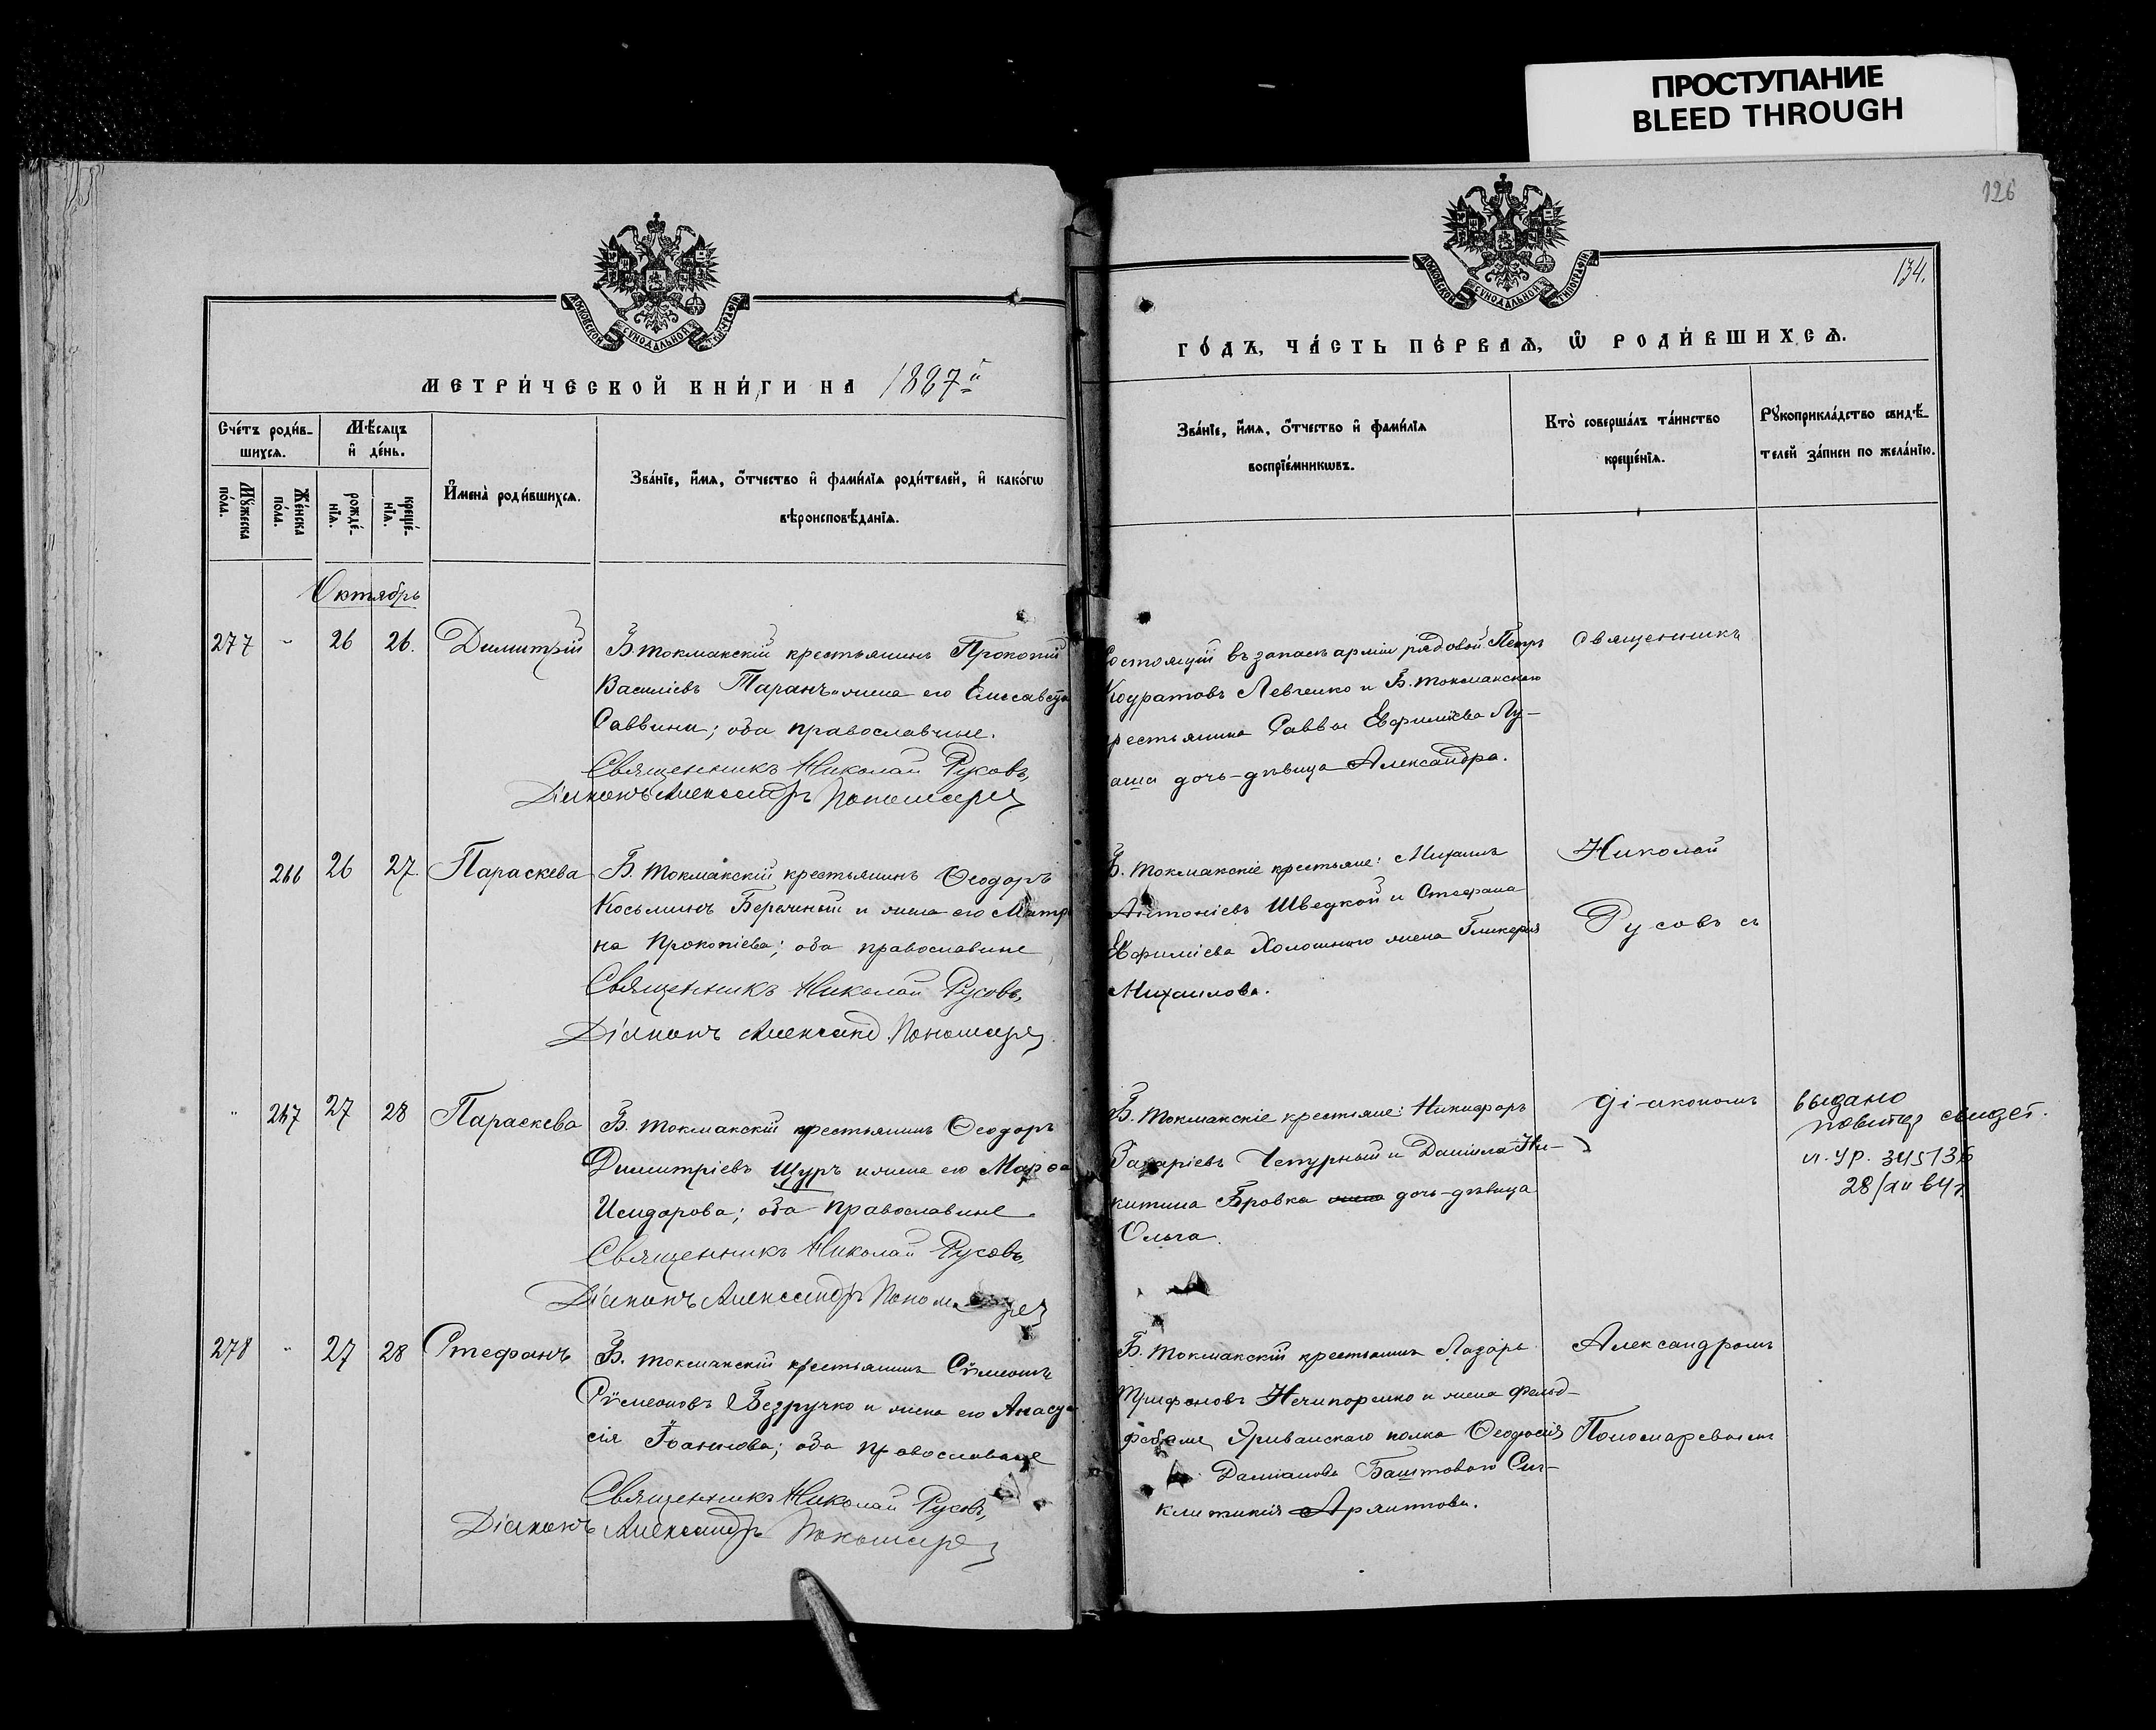 ПРОСТУПАНИЕ
BLEED THROUGH
126
134.
МОСКОВСКОЙ СѴНОДАЛЬНОЙ ТИПОГРАФІИ
МОСКОВСКОЙ СѴНОДАЛЬНОЙ ТИПОГРАФІИ
МЕТРИ́ЧЕСКОЙ КНИ́ГИ НА 1887й
ГО́ДЪ, ЧА́СТЬ ПЕ́РВАѦ, Ѡ РОДИ́ВШИХСѦ.
Сче́тъ роди́в-
шихсѧ.
Мꙋ́жеска
по́ла.
Же́нска
по́ла.
Мѣ́сѧцъ
и҆ де́нь.
рожде́-
нїѧ.
креще́-
нїѧ.
И҆мена̀ роди́вшихсѧ.
Зва́нїе, и҆́мѧ, ѻ҆́тчество и҆ фами́лїѧ роди́телей, и҆ како́гѡ
вѣроисповѣ́данїѧ.
Зва́нїе, и҆́мѧ, ѻ҆́тчество и҆ фами́лїѧ
воспрїе́мникѡвъ.
Кто̀ соверша́лъ та́инство
креще́нїѧ.
Рꙋкоприкла́дство свидѣ́-
телей за́писи по жела́нїю.
Октябрь
277 " 26 26. Димитрій
Б. Токмакскій крестьянинъ Прокопій
Василіевъ Таранъ и жена его Елисавета
Саввина; оба православные.
Священникъ Николай Русовъ,
Діаконъ Александръ Пономарев
Состоящій въ запасѣ арміи рядовой Петръ
Левченко и Б. Токмакскаго
крестьянина Саввы Евфиміева Лу-
дочь-дѣвица Александра.
Священникъ
266 26 27. Параскева
Б. Токмакскій крестьянинъ Ѳеодоръ
Косьминъ и жена его Матро
на Прокопіева; оба православные
Священникъ Николай Русовъ,
Діаконъ Александ. Пономарев
Б. Токмакскіе крестьяне: Михаилъ
Антоніевъ Шведкой и Стефана
Евфиміева Холошного жена Гликерія
Михаилова.
Николай
Русовъ съ
" 267 27 28 Параскева
Б. Токмакскій крестьянинъ Ѳеодоръ
Димитріевъ Щуръ и жена его Марѳа
Исидорова; оба православные
Священникъ Николай Русовъ,
Діаконъ Александръ Пономарев
Б. Токмакскіе крестьяне: Никифоръ
Захаріевъ Чепурный и Даніила Ни-
китина Бровка дочь-дѣвица
Ольга.
діакономъ
выдано
повтор свидет.
28/XII 64 г.
278 " 27 28 Стефанъ
Б. Токмакскій крестьянинъ Сѵмеонъ
Сѵмеоновъ Безручко и жена его Анаста
сія Іоаннова; оба православные
Священникъ Николай Русовъ,
Діаконъ Александръ Пономарев
Б. Токмакскій крестьянинъ Лазарь
Трифоновъ Нечипоренко и жена фельд-
фебеля Эриванскаго полка Ѳеодосія
Даміанова Баштового Син-
клитикія
Александромъ
Пономаревымъ